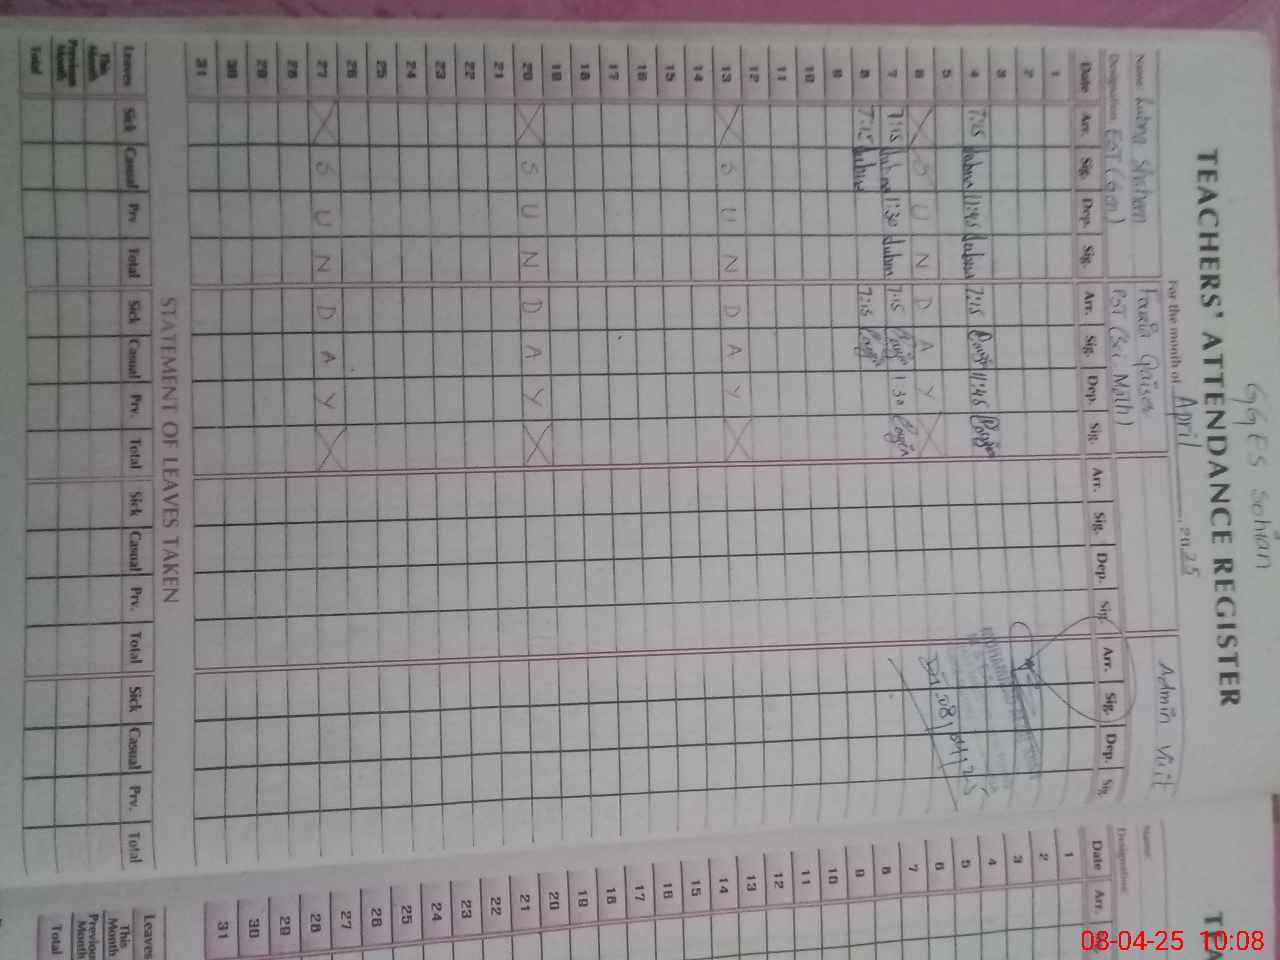 GGES Sohian
TEACHERS' ATTENDANCE REGISTER
For the month of April, 2025
Name Lubna Shaheen Fouzia Qaiser Admin Visit
Designation EST (Gen) PST (Sci-Math)
Date Arr. Sig. Dep. Sig. Arr. Sig. Dep. Sig. Arr. Sig. Dep. Sig. Arr. Sig. Dep. Sig.
1
2
3
4 7:15 Lubna 11:45 Lubna 7:15 11:45
5
6 S U N D A Y
7 7:15 Lubna 1:30 Lubna 7:15 1:30
8 7:15 Lubna 7:15
9
10
11
12
13 S U N D A Y
14
15
16
17
18
19
20 S U N D A Y
21
22
23
24
25
26
27 S U N D A Y
28
29
30
31
STATEMENT OF LEAVES TAKEN
Leaves Sick Casual Prv. Total Sick Casual Prv. Total Sick Casual Prv. Total Sick Casual Prv. Total
This Month
Previous Month
Total
TEA
Name:
Designation:
Date Arr.
1
2
3
4
5
6
7
8
9
10
11
12
13
14
15
16
17
18
19
20
21
22
23
24
25
26
27
28
29
30
31
Leaves
This Month
Previous Month
Total
08-04-25 10:08